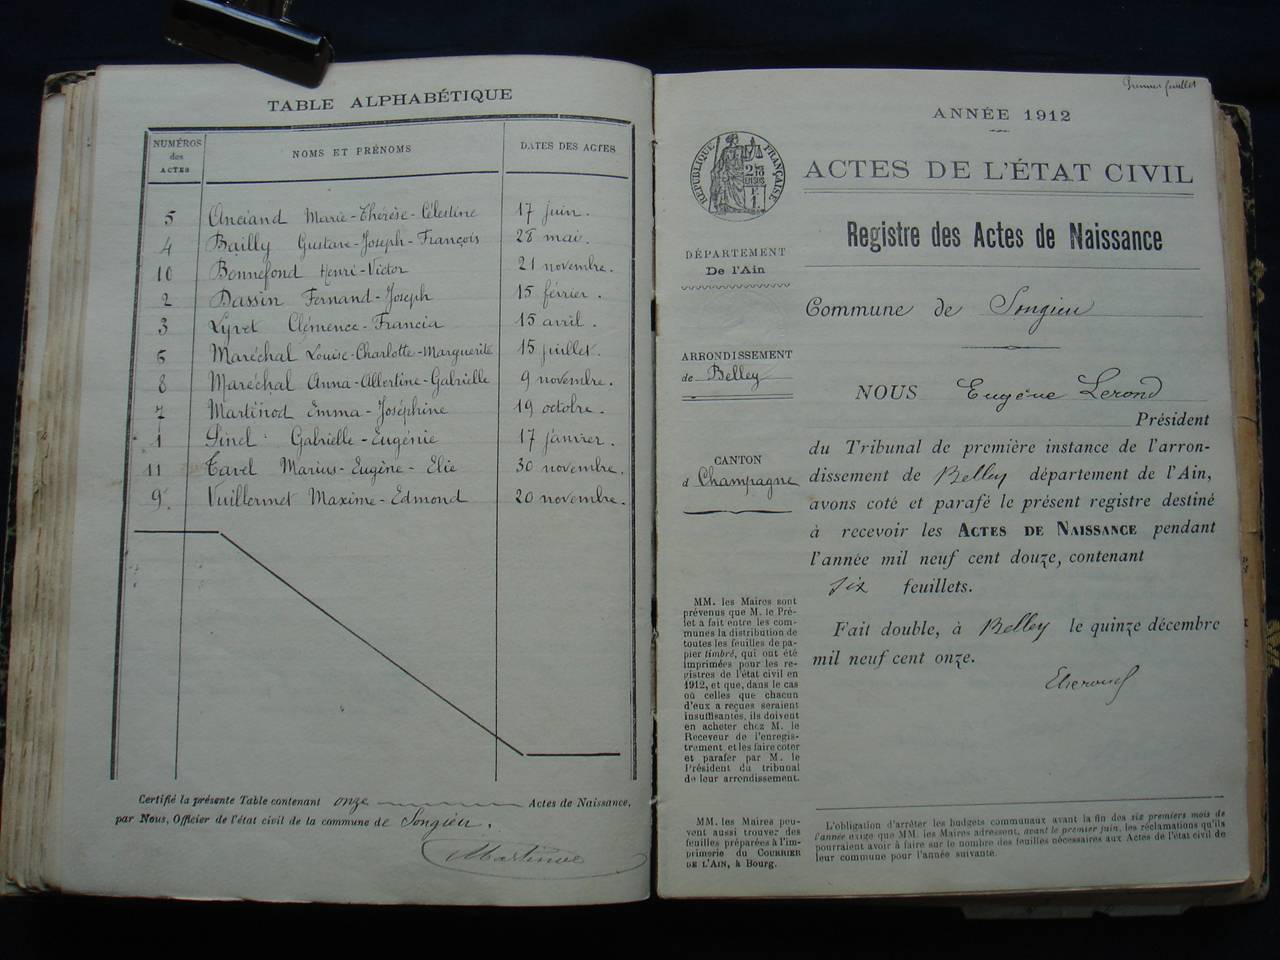 TABLE ALPHABÉTIQUE
NUMÉROS des ACTES NOMS ET PRÉNOMS DATES DES ACTES
5 Anciand Marie-Thérèse-Célestine 17 juin.
4 Bailly Gustave-Joseph-François 28 mai.
10 Bonnefond Henri-Victor 21 novembre.
2 Dassin Fernand-Joseph 15 février.
3 Lyvet Clémence-Francia 15 avril.
6 Maréchal Louise-Charlotte-Marguerite 15 juillet.
8 Maréchal Anna-Albertine-Gabrielle 9 novembre.
7 Martinod Emma-Joséphine 19 octobre.
1 Sinel Gabrielle-Eugénie 17 janvier.
11 Tavel Marius-Eugène-Elie 30 novembre.
9. Vuillermet Maxime-Edmond 20 novembre.
Certifié la présente Table contenant onze Actes de Naissance,
par Nous, Officier de l'état civil de la commune de Songieu.
Premier feuillet
ANNÉE 1912
RÉPUBLIQUE FRANÇAISE
ACTES DE L'ÉTAT CIVIL
Registre des Actes de Naissance
DÉPARTEMENT
De l'Ain
Commune de Songieu
ARRONDISSEMENT
de Belley
CANTON
d Champagne
NOUS Eugène Lerond
Président
du Tribunal de première instance de l'arron-
dissement de Belley département de l'Ain,
avons coté et parafé le présent registre destiné
à recevoir les ACTES DE NAISSANCE pendant
l'année mil neuf cent douze, contenant
six feuillets.
Fait double, à Belley le quinze décembre
mil neuf cent onze.
MM. les Maires sont
prévenus que M. le Pré-
fet a fait entre les com-
munes la distribution de
toutes les feuilles de pa-
pier timbré, qui ont été
imprimées pour les re-
gistres de l'état civil en
1912, et que, dans le cas
où celles que chacun
d'eux a reçues seraient
insuffisantes, ils doivent
en acheter chez M. le
Receveur de l'enregis-
trement, et les faire coter
et parafer par M. le
Président du tribunal
de leur arrondissement.
MM. les Maires peu-
vent aussi trouver des
feuilles préparées à l'im-
primerie du COURRIER
DE L'AIN, à Bourg.
L'obligation d'arrêter les budgets communaux avant la fin des six premiers mois de
l'année exige que MM. les Maires adressent, avant le premier juin, les réclamations qu'ils
pourraient avoir à faire sur le nombre des feuilles nécessaires aux Actes de l'état civil de
leur commune pour l'année suivante.